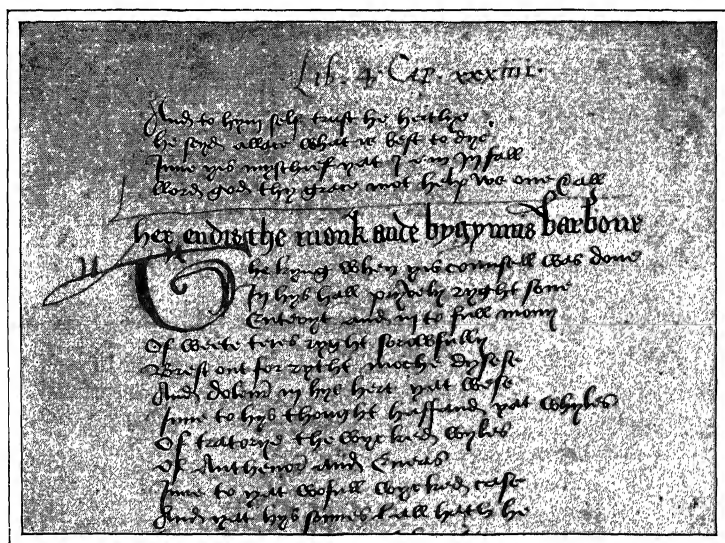 Lib. 4. Cap. xxxiiii.
And to hym self trist he
he seyd allace what is best to dye
Inne yis myschief yat I em in fall
lord god thy grace mot help ws one all
her endis the monk ande bygynnis barbour
The kyng when yis counsell was done
In hys hall pryvely ryght sone
Enteryt and in to full mony
Of teres ryght sorowfully
Brest out for rytht moche dysese
And dolour in hys hert yat wese
Inne to hys thought haffand yat whyles
Of tratorye the wyckked wyles
Of Anthenor and Eneas
Inne to yat wofull wyckked case
And yat hys sonnes all he